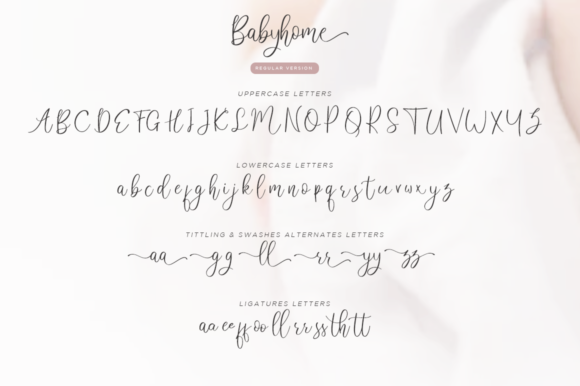 Babyhome
REGULAR VERSION
UPPERCASE LETTERS
ABCDEFGHIJKLMNOPQRSTUVWXYZ
LOWERCASE LETTERS
abcdefghijklmnopqrstuvwxyz
TITTLING & SWASHES ALTERNATES LETTERS
aa gg ll rr yy zz
LIGATURES LETTERS
aa ee ff oo ll rr ss th tt